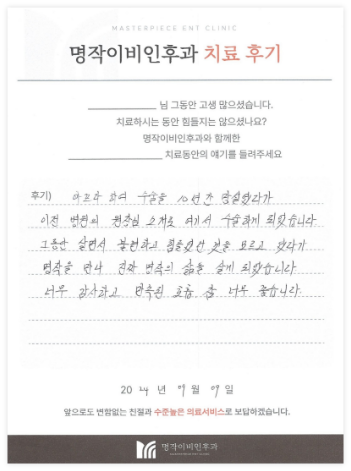 MASTERPIECE ENT CLINIC
명작이비인후과 치료 후기
님 그동안 고생 많으셨습니다.
치료하시는 동안 힘들지는 않으셨나요?
명작이비인후과와 함께한
치료동안의 얘기를 들려주세요
후기) 아프다 하여 수술을 10여년간 망설였다가
이전 병원의 원장님 소개로 여기서 수술하게 되었습니다
그동안 살면서 불편하고 힘들었던 것을 모르고 살다가
명작을 만나 진짜 만족의 삶을 살게 되었습니다
너무 감사하고 만족된 요즘 참 너무 좋습니다.
20 24 년 09 월 09 일
앞으로도 변함없는 친절과 수준높은 의료서비스로 보답하겠습니다.
명작이비인후과